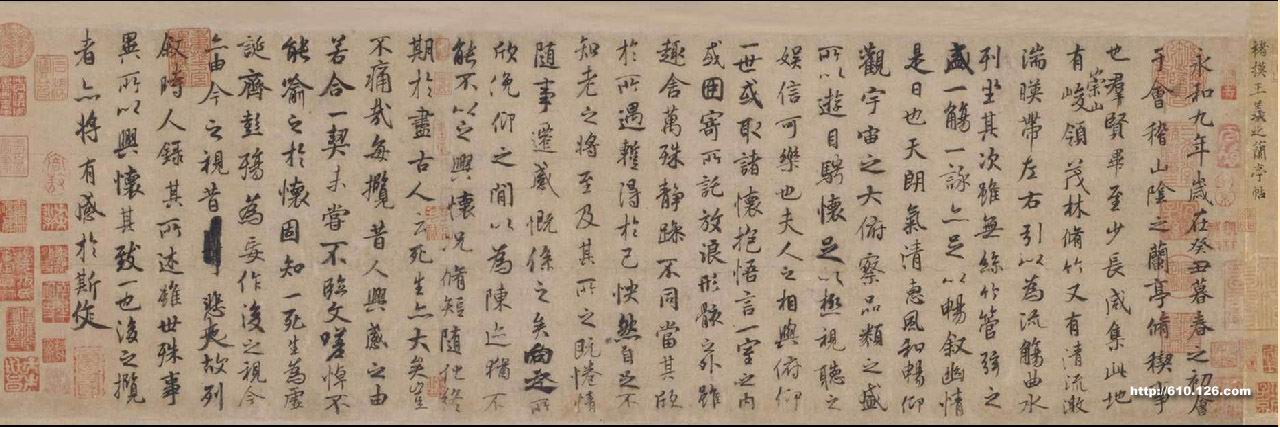 褚摸王羲之蘭亭帖
永和九年歲在癸丑暮春之初會
于會稽山陰之蘭亭脩稧事
也羣賢畢至少長咸集此地
有崇山峻領茂林脩竹又有清流激
湍暎帶左右引以為流觴曲水
列坐其次雖無絲竹管弦之
盛一觴一詠亦足以暢叙幽情
是日也天朗氣清惠風和暢仰
觀宇宙之大俯察品類之盛
所以遊目騁懷足以極視聽之
娛信可樂也夫人之相與俯仰
一世或取諸懷抱悟言一室之內
或因寄所託放浪形骸之外雖
趣舍萬殊静躁不同當其欣
於所遇暫得於己怏然自足不
知老之將至及其所之既惓情
隨事遷感慨係之矣向之所
欣俛仰之間以為陳迹猶不
能不以之興懷况脩短隨化終
期於盡古人云死生亦大矣豈
不痛哉每攬昔人興感之由
若合一契未嘗不臨文嗟悼不
能喻之於懷固知一死生為虛
誕齊彭殤為妄作後之視今
亦由今之視昔悲夫故列
叙時人錄其所述雖世殊事
異所以興懷其致一也後之攬
者亦將有感於斯文
http://610.126.com/